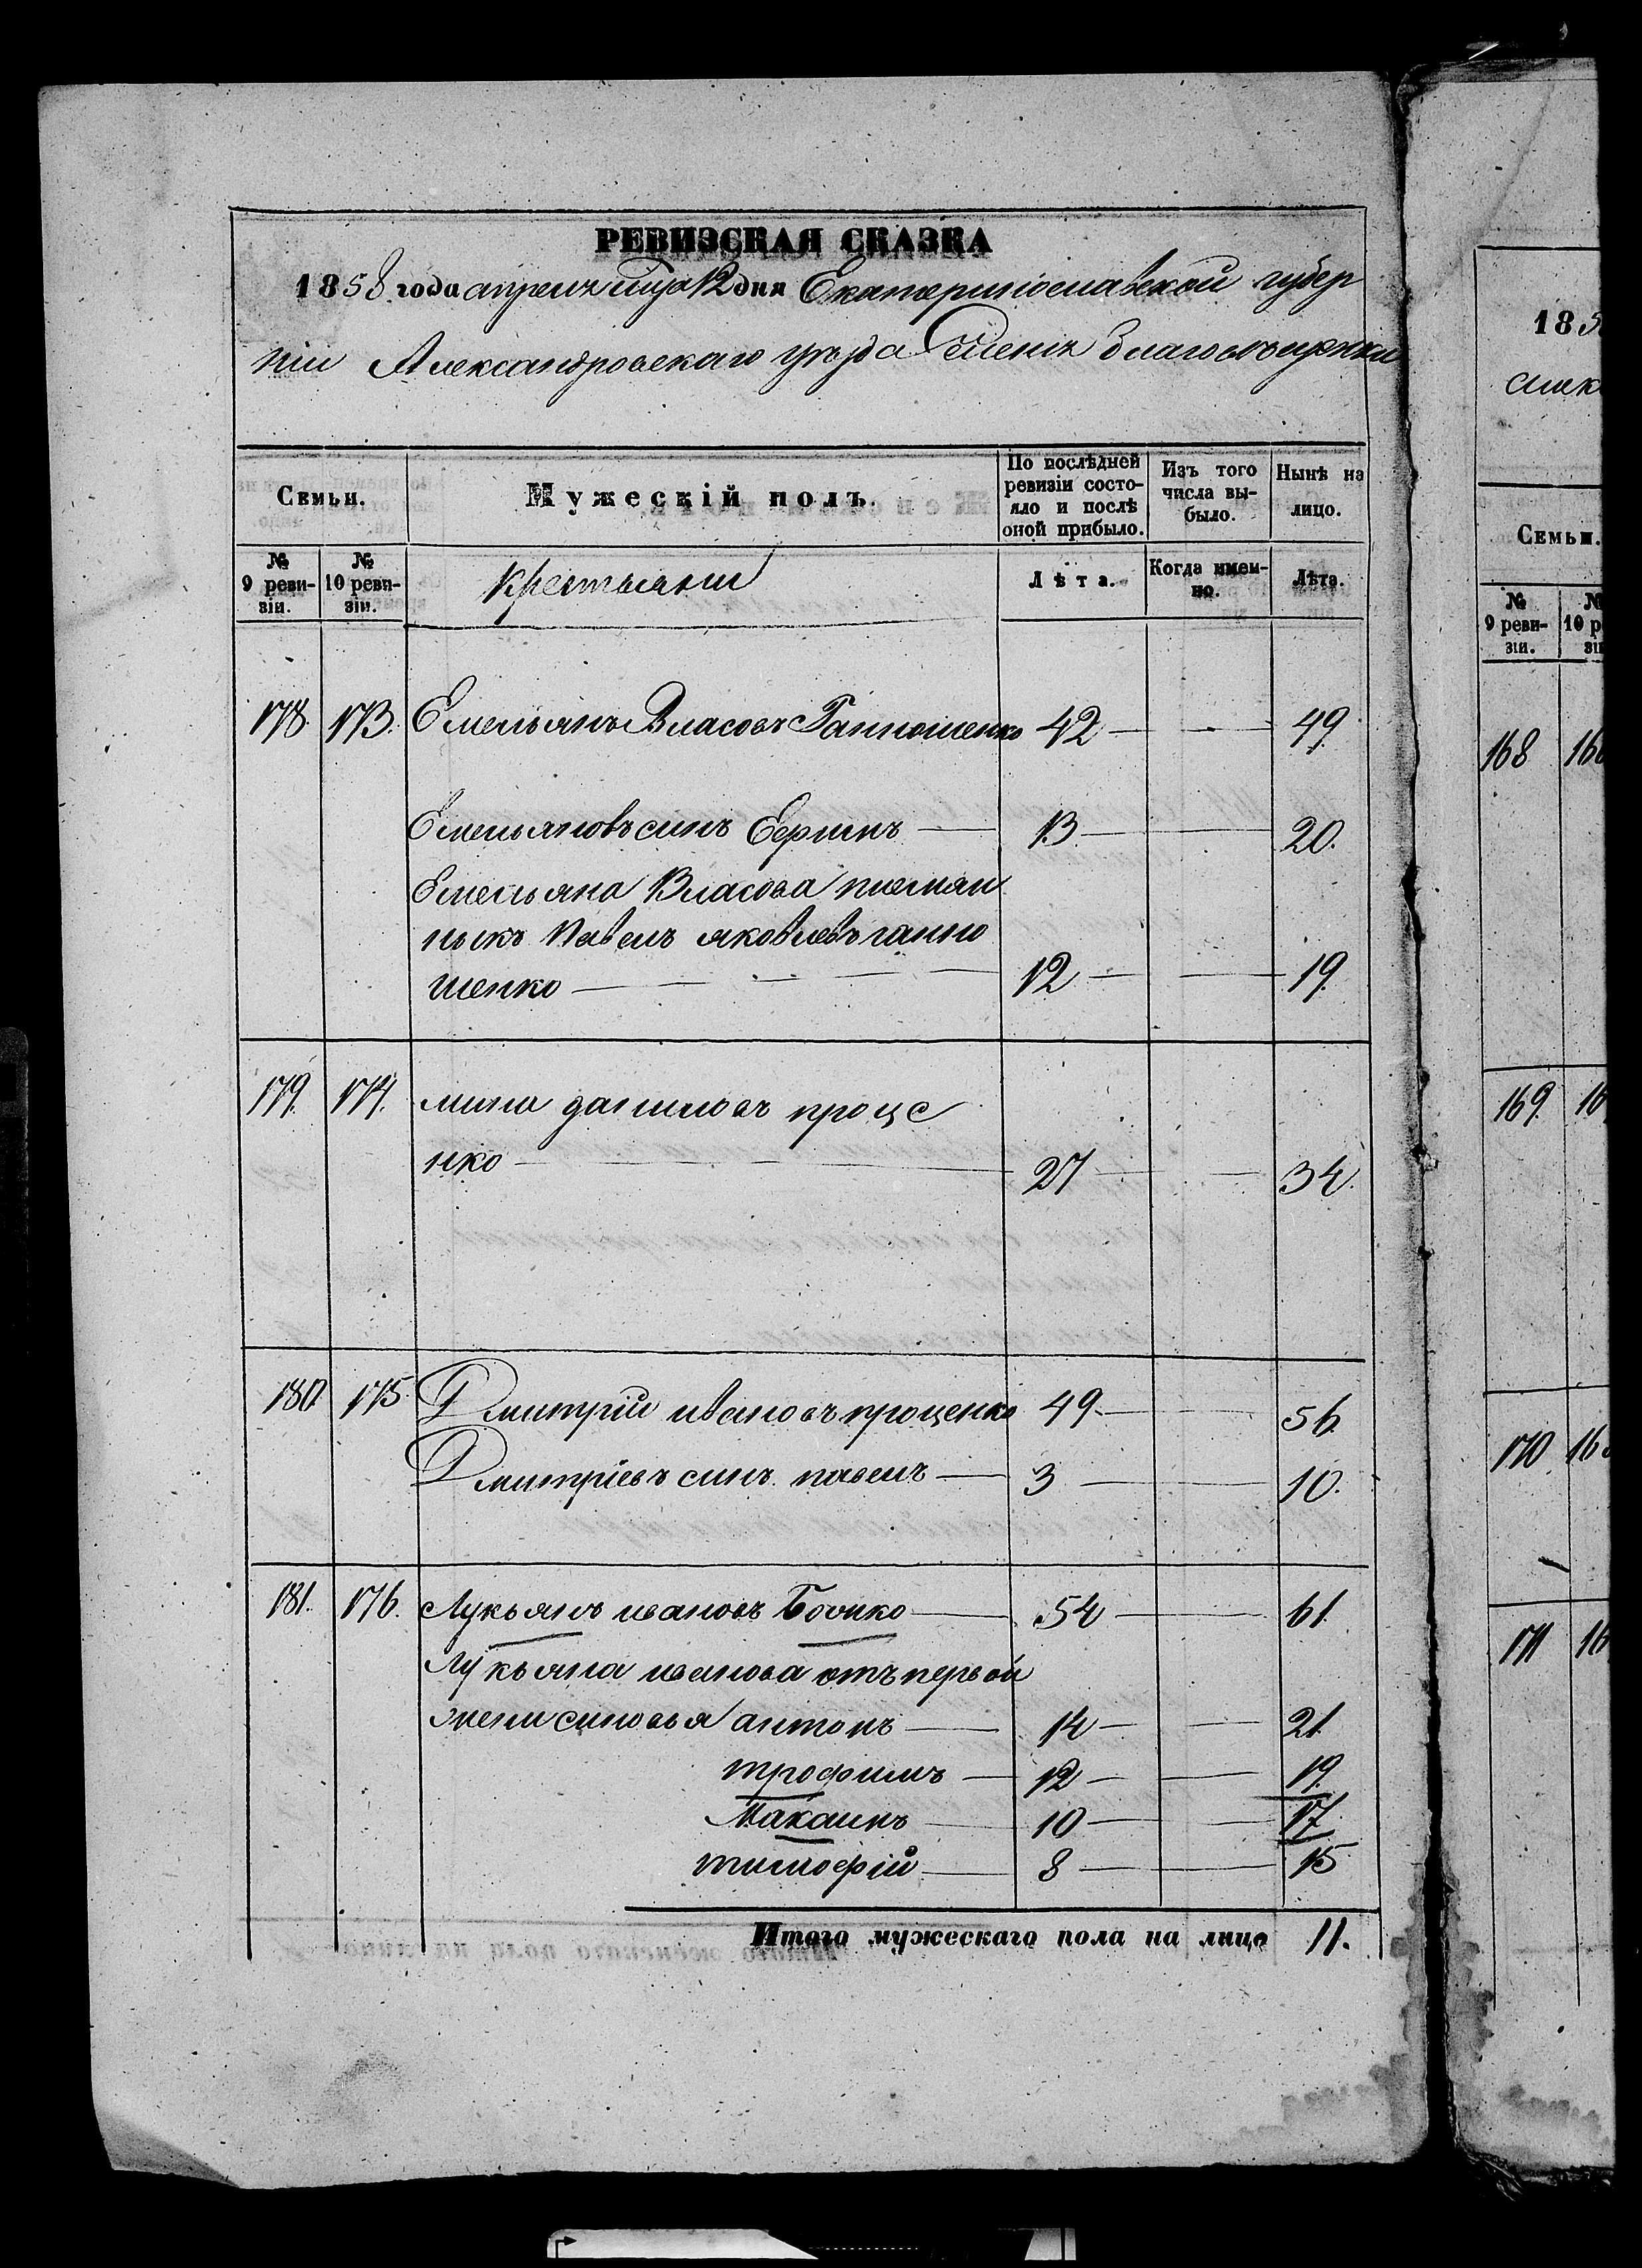 РЕВИЗСКАЯ СКАЗКА
1858 года апреля 12 дня Екатеринославской губер
ніи Александровскаго уезда Селенія Благовѣщенки
Семьи.
Мужескій полъ.
По послѣдней ревизіи состояло и послѣ оной прибыло.
Изъ того числа выбыло.
Нынѣ на лицо.
№ 9 ревизіи.
№ 10 ревизіи.
Крестьяни
Лѣта.
Когда именно.
Лѣта.
178. 173. Емельянъ Власовъ Ганношенко 42 49.
Емельяновъ синъ 13 20.
Емельяна Власова племян
никъ Павелъ яковлевъ ганно
шенко 12 19.
179. 174. мина даниловъ проце
нко 27 34.
180 175. Дмитрій ивановъ проценко 49 56.
Дмитріевъ синъ павелъ 3 10.
181. 176. Лукьянъ ивановъ Бойко 54 61.
Лукьяна иванова отъ первой
жени синовья антонъ 14 21.
трофимъ 12 19.
10 17.
тимофій 8 15.
Итого мужескаго пола на лицо 11.
185
Семьи.
№ 9 ревизіи.
№ 10 р
168 16
169. 16
170. 16
171 16